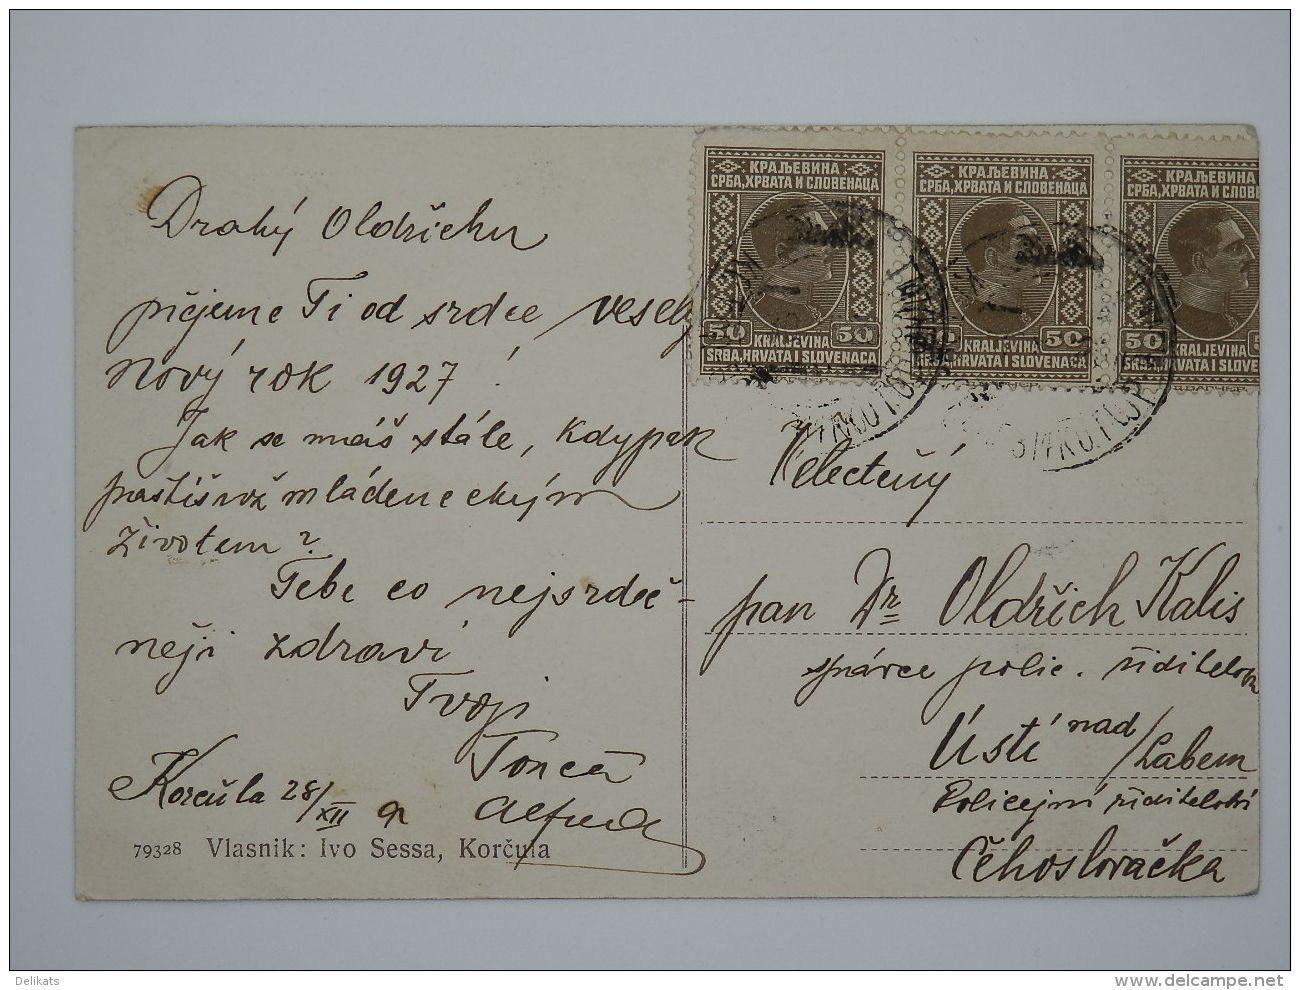 Drahý Oldřichu
přejeme Ti od srdce veselý
nový rok 1927!
Jak se máš stále, kdypak
praštíš už mládeneckým
životem?
Tebe co nejsrdeč-
něji zdraví
Tvoji
Tonca
Alfred
Korčula 28/XII
79328 Vlasnik: Ivo Sessa, Korčula
КРАЉЕВИНА
СРБА, ХРВАТА И СЛОВЕНАЦА
50 50
KRALJEVINA
SRBA, HRVATA I SLOVENACA
КРАЉЕВИНА
СРБА, ХРВАТА И СЛОВЕНАЦА
50
KRALJEVINA
HRVATA I SLOVENACA
КРАЉЕВИНА
СРБА, ХРВАТА И СЛОВЕ
50
KRALJEVINA
HRVATA I SLOVE
KOTOR
KOTOR
Velectěný
pan Dr Oldřich Kalis
správce polic. ředitelství
Ústí nad/Labem
Policejní ředitelství
Čehoslovačka
Delikats
www.delcampe.net